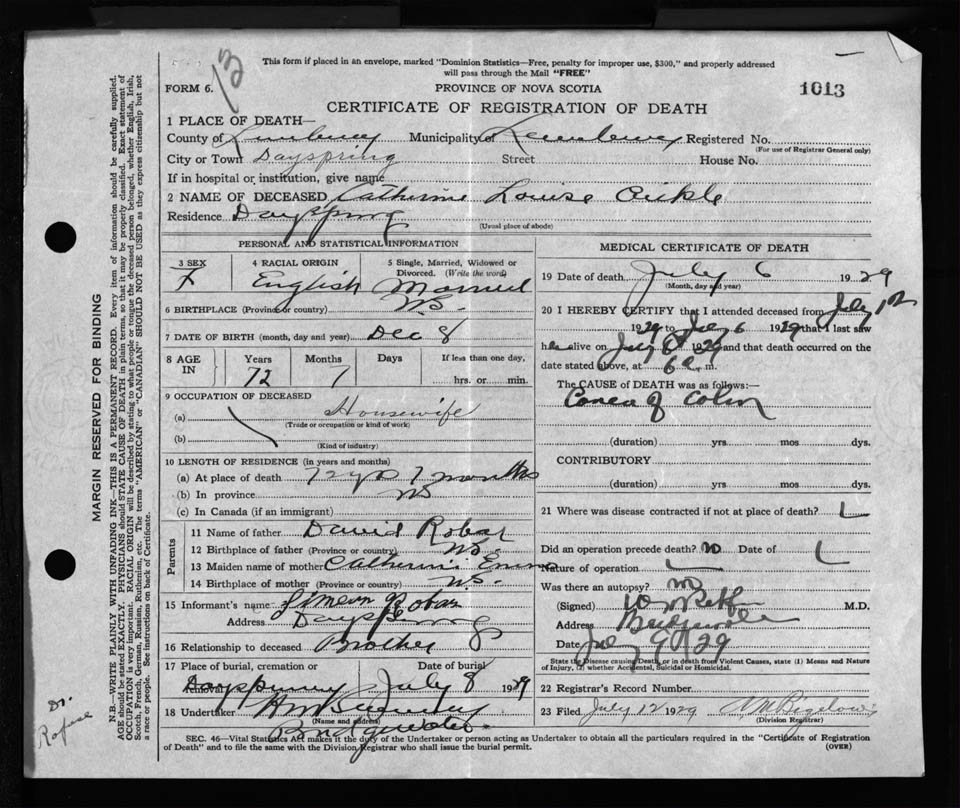 This form if placed in an envelope, marked "Dominion Statistics—Free, penalty for improper use, $300," and properly addressed
will pass through the Mail "FREE"
FORM 6.
13
PROVINCE OF NOVA SCOTIA
1013
CERTIFICATE OF REGISTRATION OF DEATH
1 PLACE OF DEATH—
County of Lunenburg Municipality of Lunenburg Registered No.
(For use of Registrar General only)
City or Town Dayspring Street House No.
If in hospital or institution, give name
2 NAME OF DECEASED Catherine Louise Oickle
Residence Dayspring
(Usual place of abode)
PERSONAL AND STATISTICAL INFORMATION
3 SEX F
4 RACIAL ORIGIN English
5 Single, Married, Widowed or Divorced. (Write the word) Married
6 BIRTHPLACE (Province or country) N.S.
7 DATE OF BIRTH (month, day and year) Dec 8
8 AGE IN Years 72 Months 7 Days If less than one day, hrs. or min.
9 OCCUPATION OF DECEASED
(a) Housewife
(Trade or occupation or kind of work)
(b)
(Kind of industry)
10 LENGTH OF RESIDENCE (in years and months)
(a) At place of death 72 yrs 7 months
(b) In province NS
(c) In Canada (if an immigrant)
Parents
11 Name of father David Robar
12 Birthplace of father (Province or country) N.S.
13 Maiden name of mother Catherine
14 Birthplace of mother (Province or country) N.S.
15 Informant's name Simeon Robar
Address Dayspring
16 Relationship to deceased Brother
17 Place of burial, cremation or removal Dayspring
Date of burial July 8 1929
18 Undertaker
(Name and address)
Bridgewater
MEDICAL CERTIFICATE OF DEATH
19 Date of death July 6 1929
(Month, day and year)
20 I HEREBY CERTIFY that I attended deceased from July 1st
1929 to July 6 1929 that I last saw
her alive on July 6 1929 and that death occurred on the
date stated above, at 6 a.m.
The CAUSE of DEATH was as follows:—
Cancer of Colon
(duration) yrs mos dys.
CONTRIBUTORY
(duration) yrs. mos dys.
21 Where was disease contracted if not at place of death?
Did an operation precede death? no Date of
Nature of operation
Was there an autopsy? no
(Signed) M.D.
Address Bridgewater
Date July 9 1929
State the Disease causing Death, or in death from Violent Causes, state (1) Means and Nature
of Injury, (2) whether Accidental, Suicidal or Homicidal.
22 Registrar's Record Number
23 Filed July 12 1929 Bigelow
(Division Registrar)
SEC. 46—Vital Statistics Act makes it the duty of the Undertaker or person acting as Undertaker to obtain all the particulars required in the "Certificate of Registration
of Death" and to file the same with the Division Registrar who shall issue the burial permit.
(OVER)
MARGIN RESERVED FOR BINDING
N.B.—WRITE PLAINLY WITH UNFADING INK—THIS IS A PERMANENT RECORD. Every item of information should be carefully supplied.
AGE should be stated EXACTLY. PHYSICIANS should STATE CAUSE OF DEATH in plain terms, so that it may be properly classified. Exact statement of
OCCUPATION is very important. RACIAL ORIGIN will be described by stating to what people or tongue the deceased person belonged, whether English, Irish,
Scotch, French, German, Russian, Ruthenian, etc. The terms "AMERICAN" or "CANADIAN" SHOULD NOT BE USED as they express citizenship but not
a race or people. See instructions on back of Certificate.
Dr. Rafuse